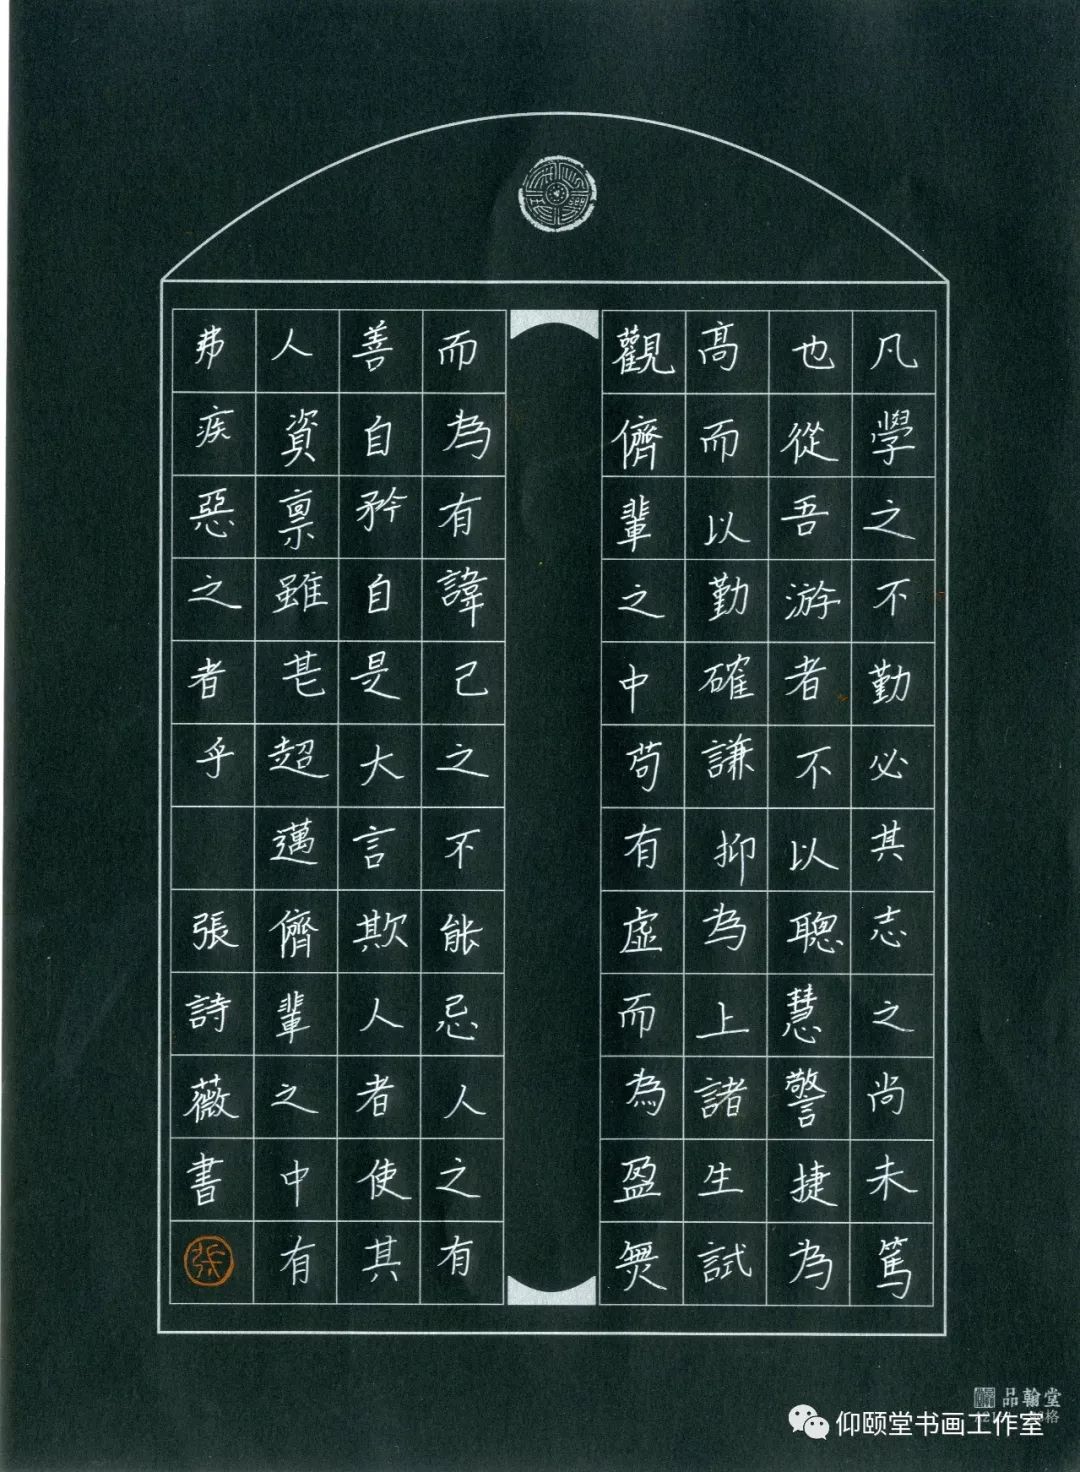 凡學之不勤必其志之尚未篤
也從吾游者不以聰慧警捷為
髙而以勤確謙抑為上諸生試
觀儕輩之中苟有虛而為盈無
而為有諱己之不能忌人之有
善自矜自是大言欺人者使其
人資禀雖甚超邁儕輩之中有
弗疾惡之者乎 張詩薇書
張
品翰堂
仰颐堂书画工作室